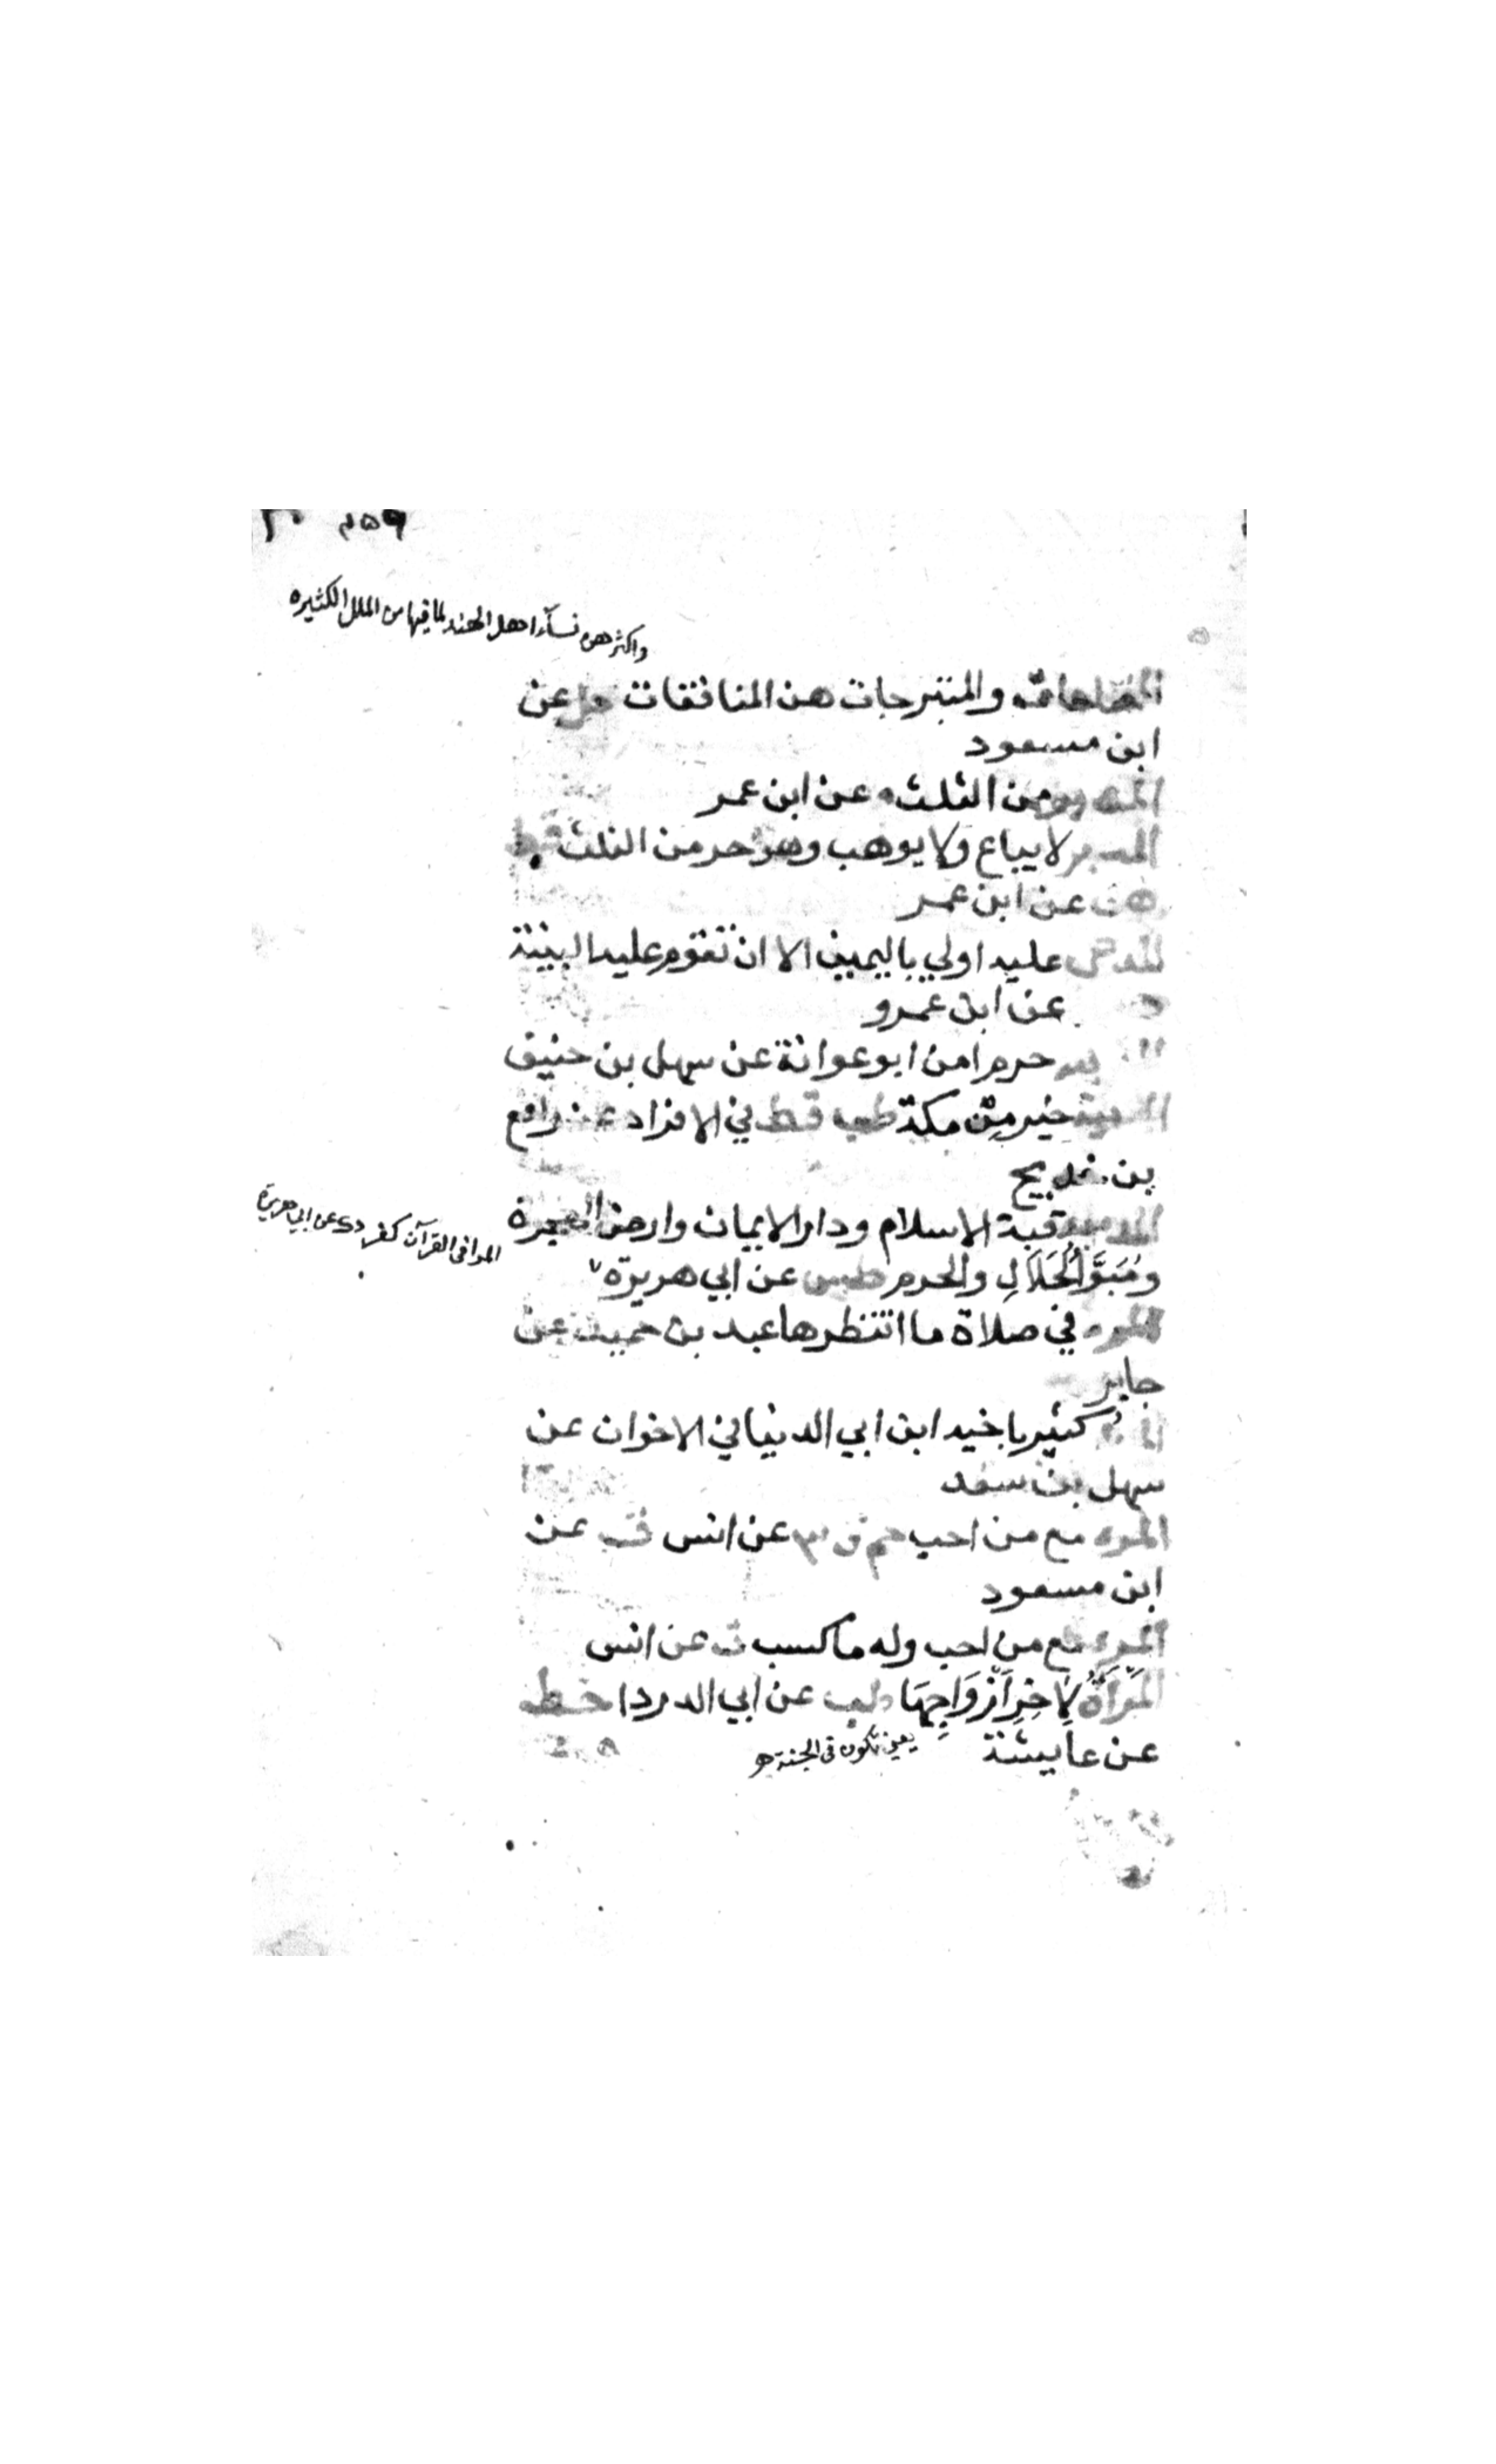 واكثرهن نسآء اهل الهند لما فيها من الملل الكثيره
والمتبرجات هن المنافقات حل عن
ابن مسعود
من الثلث عن ابن عمر
المدبر لا يباع ولا يوهب وهو حر من الثلث قط
هق عن ابن عمر
المدعى عليه اولي باليمين الا ان تقوم عليه البينة
عن ابن عمرو
حرم امن ابو عوانة عن سهل بن حنيف
المدينة خير من مكة طب قط في الافراد عن رافع
بن خديج
المدينة قبة الاسلام ودار الايمان وارض الهجرة
ومُبَوَّأُ الحَلَالِ والحرم طس عن ابي هريرة
المرا في القرآن كفر دك عن ابي هريرة
المرء في صلاة ما انتظرها عبد بن حميد عن
جابر
كثير باخيه ابن ابي الدنيا في الاخوان عن
سهل بن سعد
المرء مع من احب حم ق ٣ عن انس ق عن
ابن مسعود
المرء مع من احب وله ما كسب ت عن انس
المَرْأَةُ لِآخِرِ أَزْوَاجِهَا طب عن ابي الدردا خط
عن عايشة يعني تكون في الجنة